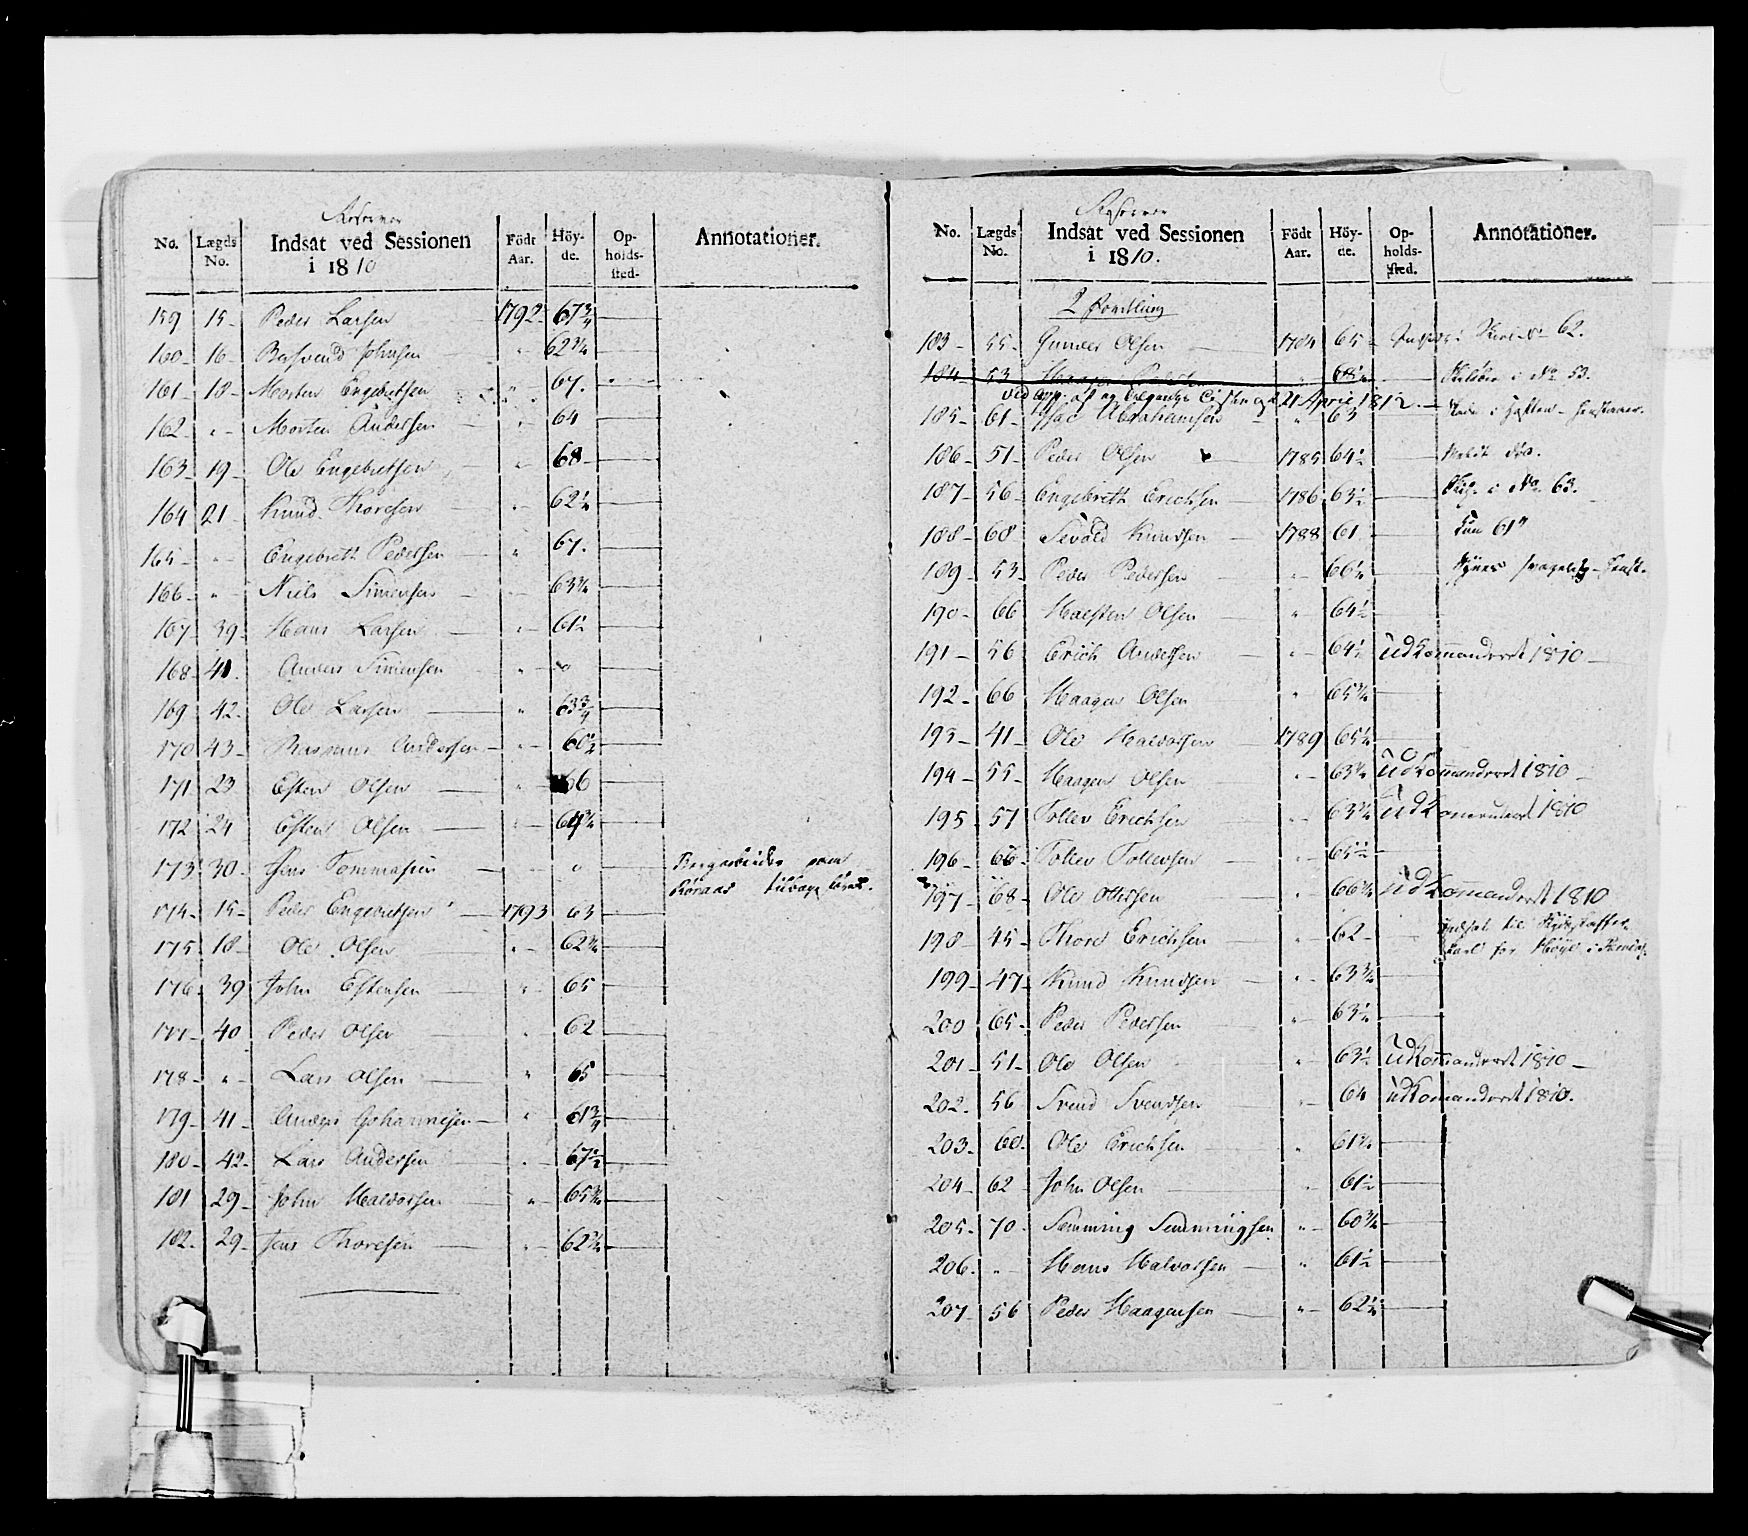 No. Lægds No. Indsat ved Sessionen i 1810 Födt Aar. Höyde. Opholdssted. Annotationer.
159 15 Peder Larsen 1792 67 3/4
160 16 Johnsen " 62 3/4
161 18 Morten Engebretsen " 67.
162 " Morten Andersen " 64
163 19 Ole Engebretsen " 68
164 21 Knud Thoresen " 62 1/4
165 " Engebreth Pedersen " 67.
166 " Niels Simensen " 63 3/4
167 39 Hans Larsen " 61 1/2
168 41. Anders Simensen " "
169 42. Ole Larsen " 63 3/4
170 43 Rasmus Andersen " 60 1/2
171 23 Esten Olsen " 66
172 24 Esten Olsen "
173 30 Jens Tommasen " " Bergarbeider paa
Röraas tilbage
174 15 Peder Engebretsen 1793 63
175 18 Ole Olsen " 62 3/4
176 39 John Estensen " 65
177 40 Peder Olsen " 62
178 " Lars Olsen " 65
179 41 Anders Johannesen " 61 3/4
180 42 Lars Andersen " 67 1/2
181 29 John Halvorsen " 65 3/4
182. 29 Jens Thoresen " 62 3/4
No. Lægds No. Indsat ved Sessionen i 1810. Födt Aar. Höyde. Opholdssted. Annotationer.
183 55 Gunder Olsen 1784 65 62.
184 53 " 68 1/2 i No 53.
21 April 1812.
185 61 Isac Abrahamsen " 63
186 51 Peder Olsen 1785 64 1/2
187 56 Engebreth Erichsen 1786 63 1/2 i No 63.
188 68 Sivald Knudsen 1788 61 kun 61"
189 53 Peder Pedersen " 66 1/4
190 66 Halsten Olsen " 64 1/2
191 56 Erich Andersen " 64 1/2 Udkommanderet 1810
192 66 Haagen Olsen " 65 3/4
193 41 Ole Halvorsen 1789 65 1/4
194 55 Haagen Olsen " 63 3/4 Udkommanderet 1810
195 57 Tollev Erichsen " 63 3/4 Udkommanderet 1810
196 66 Tollev Tollevsen " 65 1/2
197 68 Ole Ottersen " 66 3/4 Udkommanderet 1810
198 45 Thore Erichsen " 62 Indsat til
Karl for
199 47 Knud Knudsen " 63 3/4
200 65 Peder Pedersen " 63 1/4
201 51 Ole Olsen " 63 1/2 Udkommanderet 1810
202. 56 Svend Svendsen " 64 Udkommanderet 1810.
203 60. Ole Erichsen " 61 3/4
204 62 John Olsen " 61 1/2
205 70 Semming Semmingsen " 60 3/4
206. " Hans Halvorsen " 61 1/2
207 56 Peder Haagensen " 62 1/4